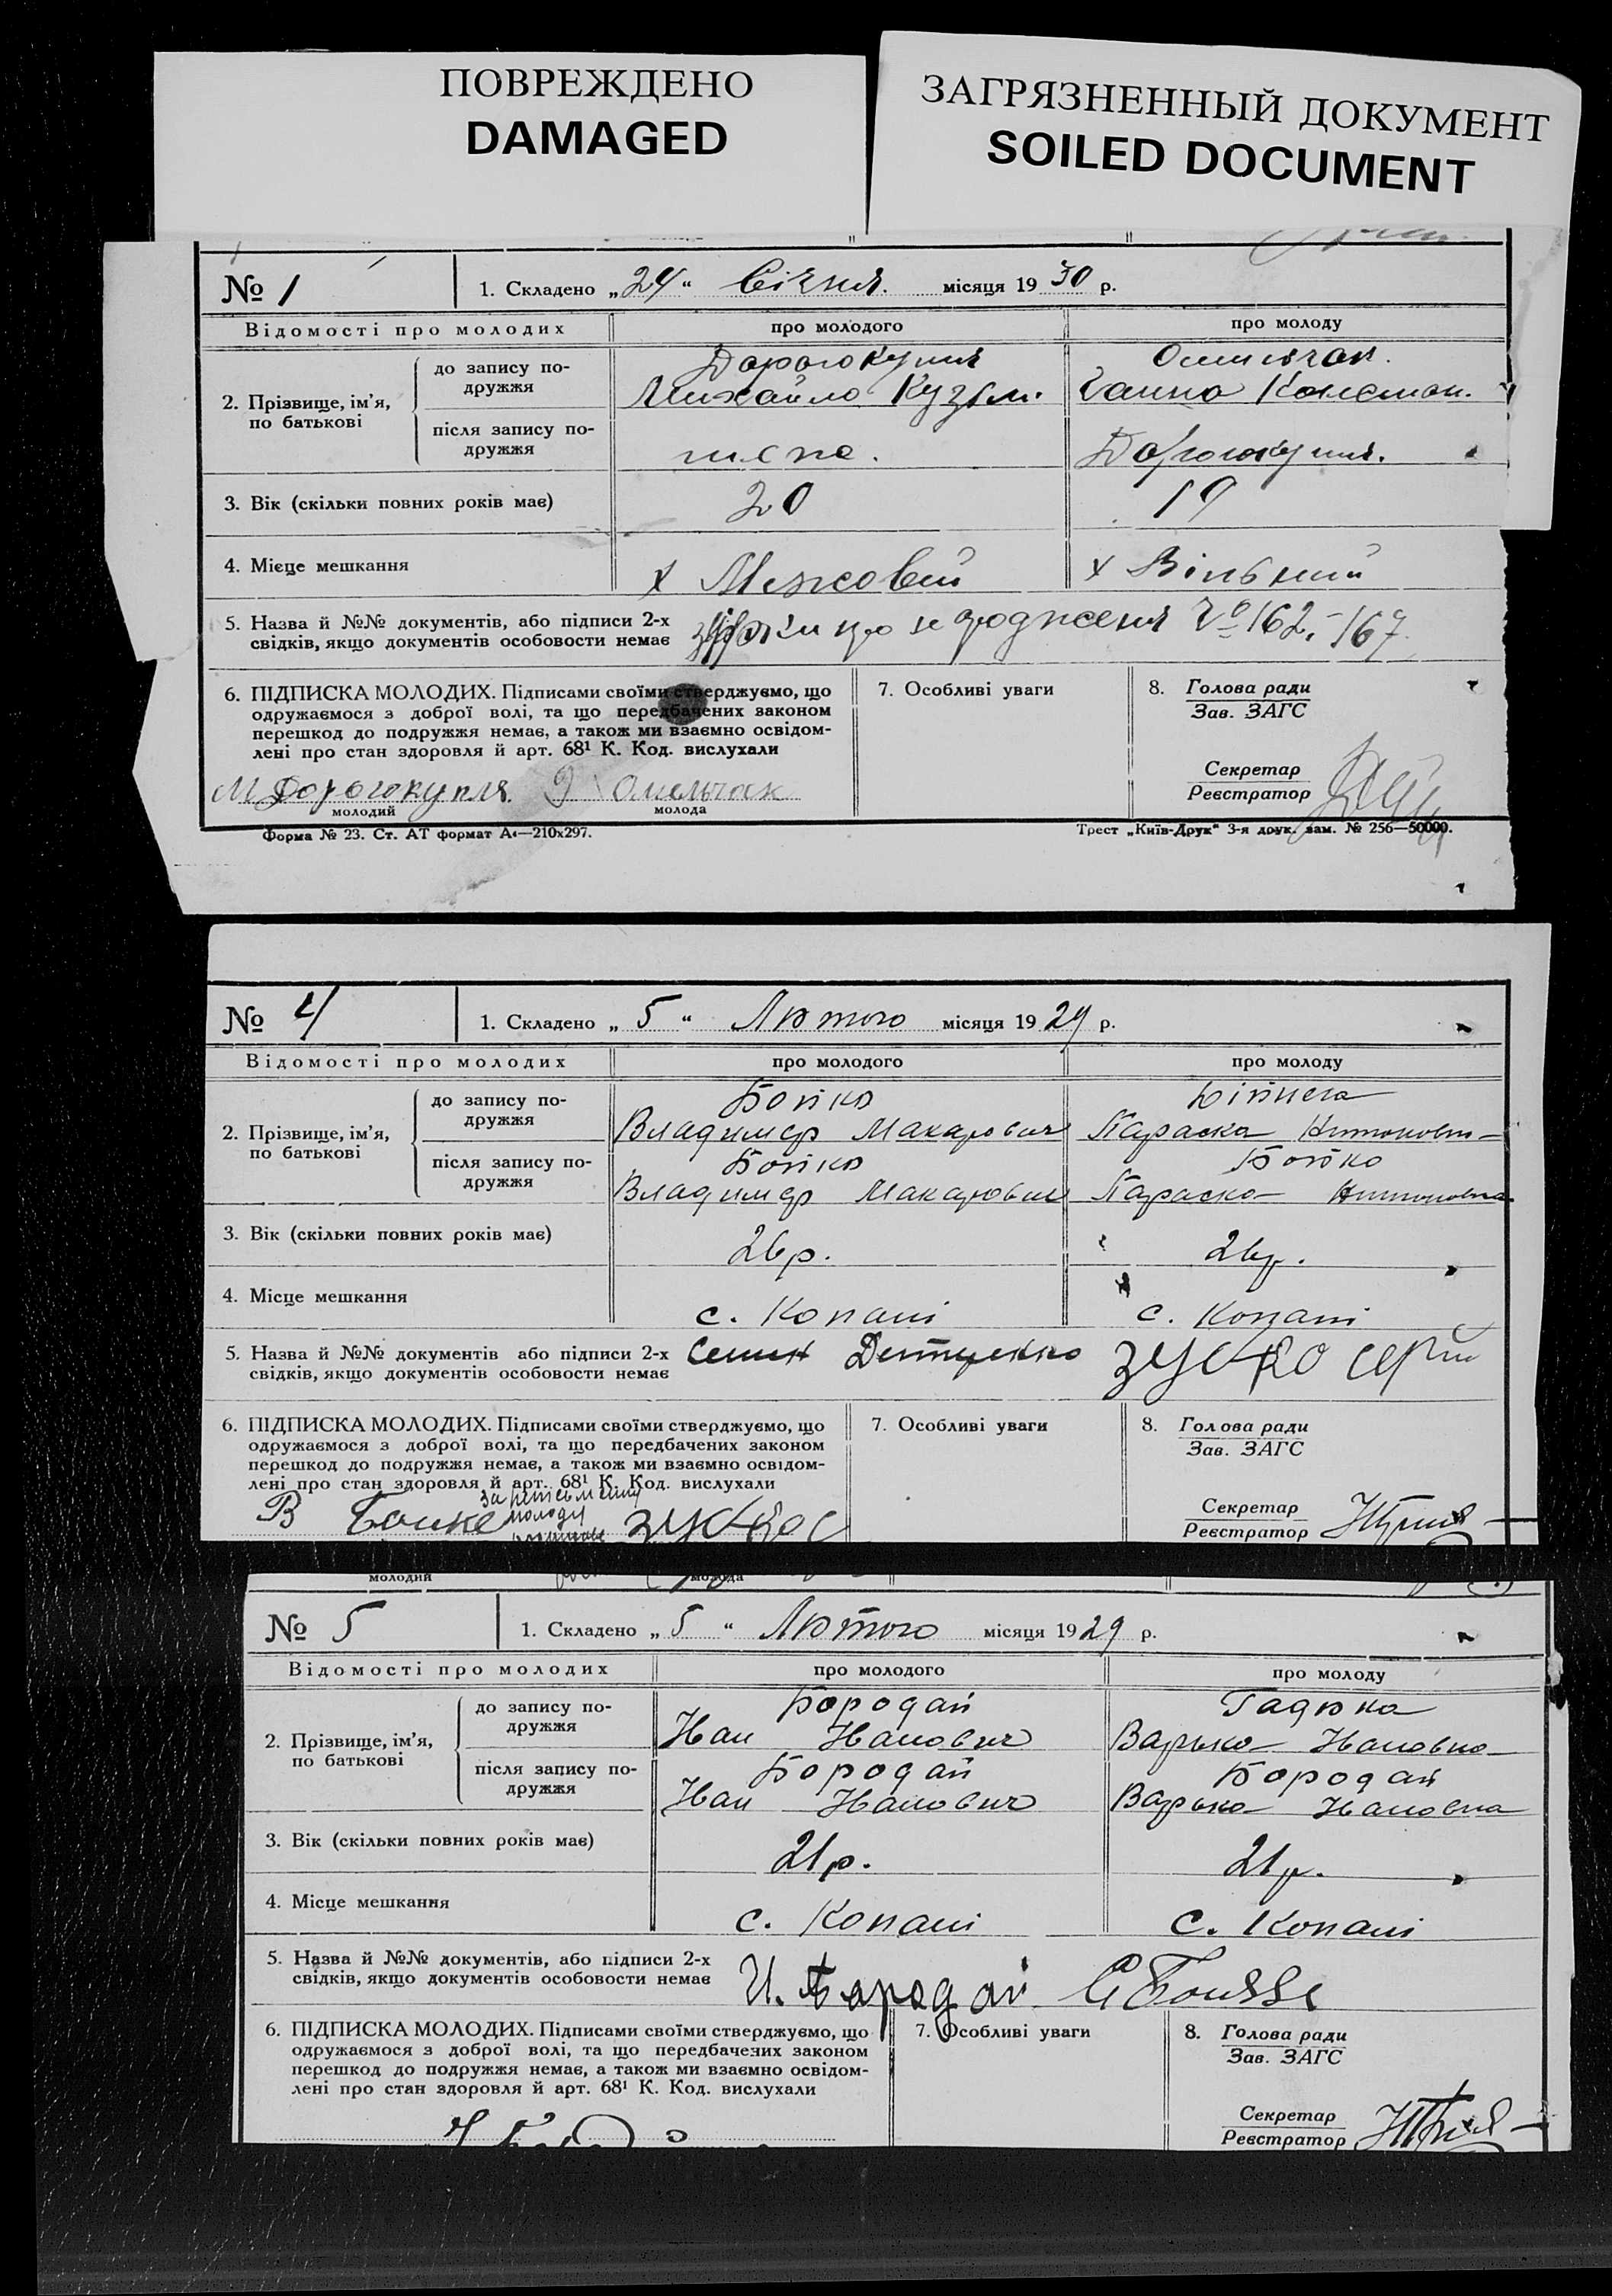 ПОВРЕЖДЕНО
DAMAGED
ЗАГРЯЗНЕННЫЙ ДОКУМЕНТ
SOILED DOCUMENT
№ 1
1. Складено „24“ Січня місяця 1930 р.
Відомості про молодих
про молодого
про молоду
2. Прізвище, ім’я,
по батькові
до запису по-
дружжя
Дорогокупля
Михайло Кузьм.
Ганна Констан.
після запису по-
дружжя
Дорогокупля.
3. Вік (скільки повних років має)
20
19
4. Місце мешкання
х Межовий
х Вільний
5. Назва й №№ документів, або підписи 2-х
свідків, якщо документів особовости немає
про народження № 162, 167
6. ПІДПИСКА МОЛОДИХ. Підписами своїми стверджуємо, що
одружаємося з доброї волі, та що передбачених законом
перешкод до подружжя немає, а також ми взаємно освідом-
лені про стан здоровля й арт. 68¹ К. Код. вислухали
М Дорогокупля.
Омельчак
молодий
молода
7. Особливі уваги
8. Голова ради
Зав. ЗАГС
Секретар
Реєстратор
Форма № 23. Ст. АТ формат А₄—210х297.
Трест „Київ-Друк“ 3-я друк. зам. № 256—50000.
№ 4
1. Складено „5“ Лютого місяця 1929 р.
Відомості про молодих
про молодого
про молоду
2. Прізвище, ім’я,
по батькові
до запису по-
дружжя
Бойко
Владимер Макарович
Параска
після запису по-
дружжя
Бойко
Бойко
Владимер Макарович
Параска
3. Вік (скільки повних років має)
26р.
26р.
4. Місце мешкання
с. Копані
с. Копані
5. Назва й №№ документів або підписи 2-х
свідків, якщо документів особовости немає
6. ПІДПИСКА МОЛОДИХ. Підписами своїми стверджуємо, що
одружаємося з доброї волі, та що передбачених законом
перешкод до подружжя немає, а також ми взаємно освідом-
лені про стан здоровля й арт. 68¹ К. Код. вислухали
В Боике
молоду
7. Особливі уваги
8. Голова ради
Зав. ЗАГС
Секретар
Реєстратор
молодий
молода
№ 5
1. Складено „5“ Лютого місяця 1929 р.
Відомості про молодих
про молодого
про молоду
2. Прізвище, ім’я,
по батькові
до запису по-
дружжя
Бородай
Гадюка
Иван Иванович
Варька Ивановна
після запису по-
дружжя
Бородай
Бородай
Иван Иванович
Варька Ивановна
3. Вік (скільки повних років має)
21р.
21р.
4. Місце мешкання
с. Копані
с. Копані
5. Назва й №№ документів, або підписи 2-х
свідків, якщо документів особовости немає
И. Бародай
6. ПІДПИСКА МОЛОДИХ. Підписами своїми стверджуємо, що
одружаємося з доброї волі, та що передбачених законом
перешкод до подружжя немає, а також ми взаємно освідом-
лені про стан здоровля й арт. 68¹ К. Код. вислухали
7. Особливі уваги
8. Голова ради
Зав. ЗАГС
Секретар
Реєстратор